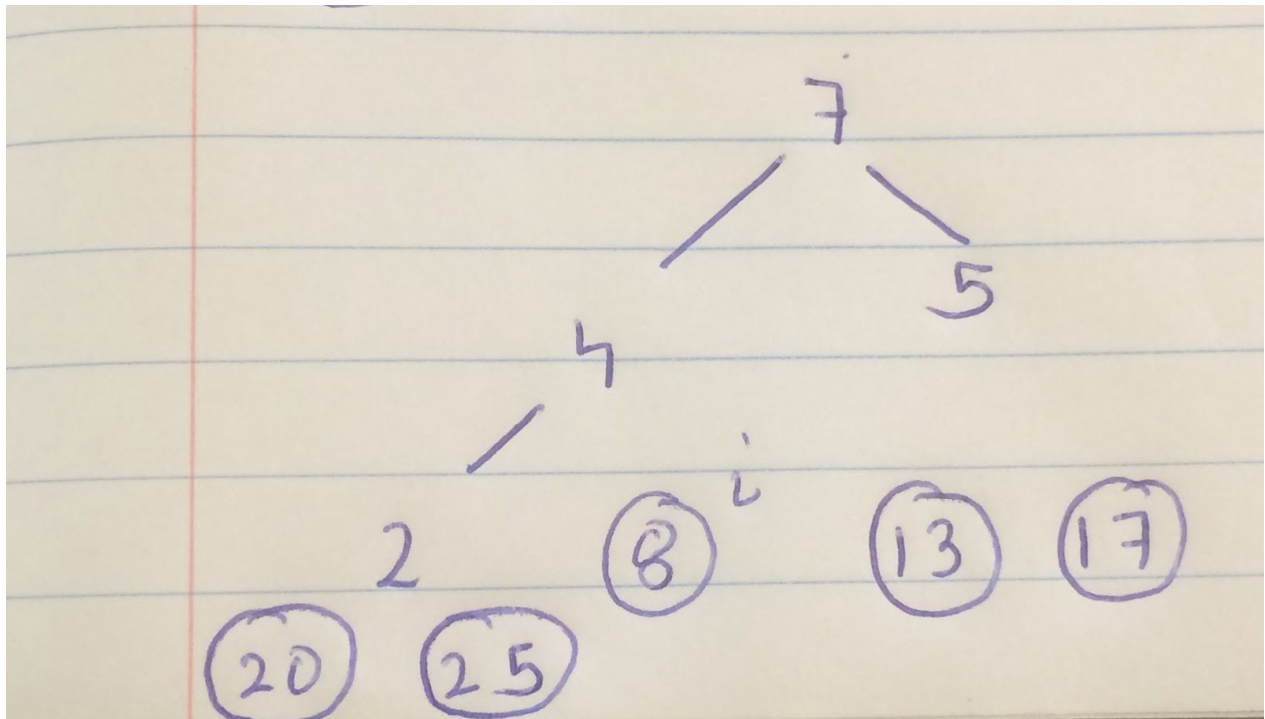 7
5
4
i
2 8 13 17
20 25